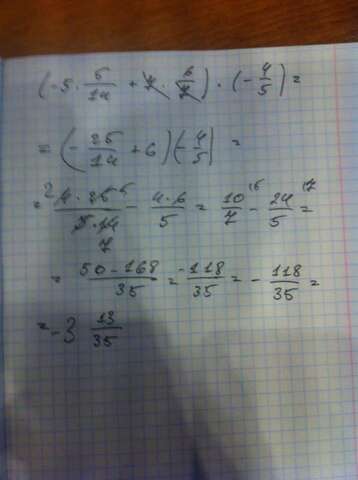 (-5 · 5/14 + 7 · 6/7) · (-4/5) =
= (-25/14 + 6)(-4/5) =
= 2 4·25 5/5·14 7 - 4·6/5 = 10/7 \5 - 24/5 \7 =
= 50-168/35 = -118/35 = - 118/35 =
= -3 13/35